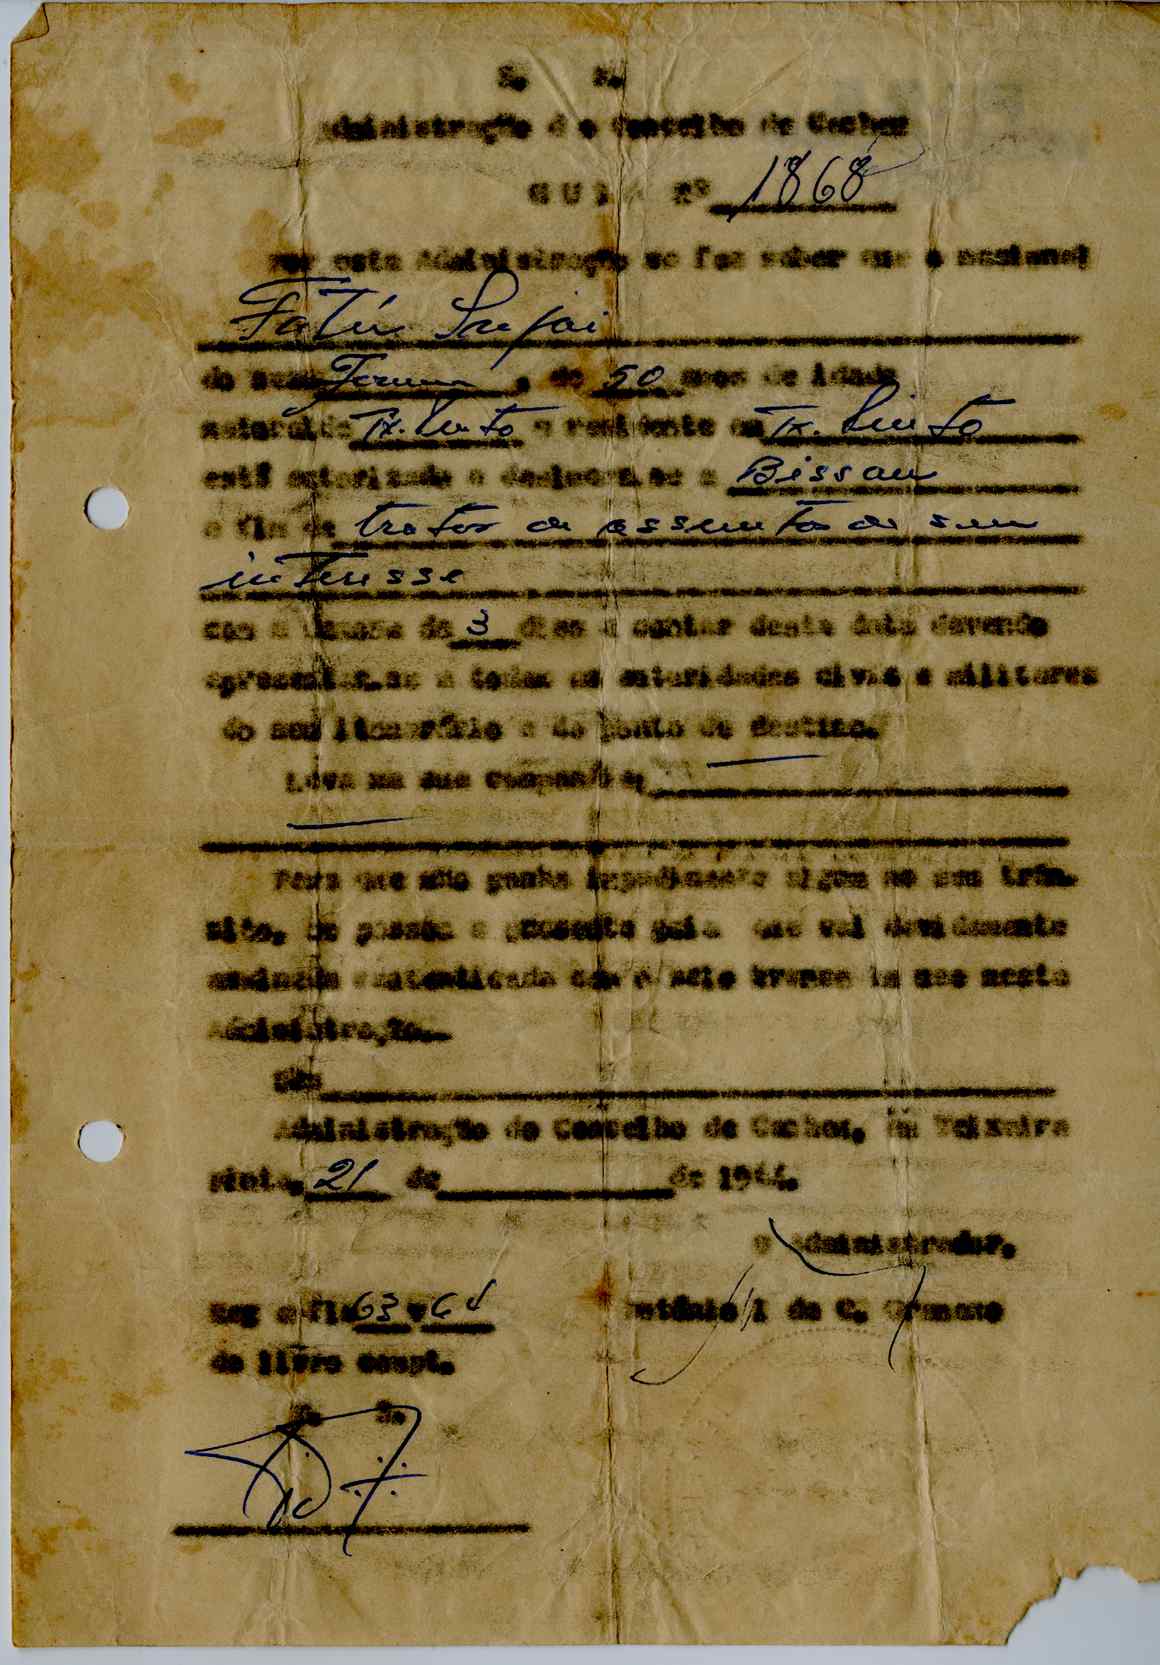 S. R.
Administração do Concelho de Cacheu
GUIA Nº 1868
Por esta Administração se faz saber que o nacional
Fatú
do sexo Femin, de 50 anos de idade
natural de Tx. Pinto e residente em Tx. Pinto
está autorizado a deslocar-se a Bissau
a fim de tratar de assunto de seu
interesse
com a demora de 3 dias a contar desta data devendo
apresentar-se a todas as autoridades civis e militares
do seu itenerário e do ponto de destino.
Leva na sua companhia,
Para que não ponha impedimento algum no seu trân-
sito, se passou a presente guia que vai devidamente
assinada e autenticada com o selo branco em uso nesta
Administração.
Administração do Concelho de Cacheu, em Teixeira
Pinto, 21 de de 196.
O Administrador,
Reg a fls 63 v 64 António de C.
do livro compt.